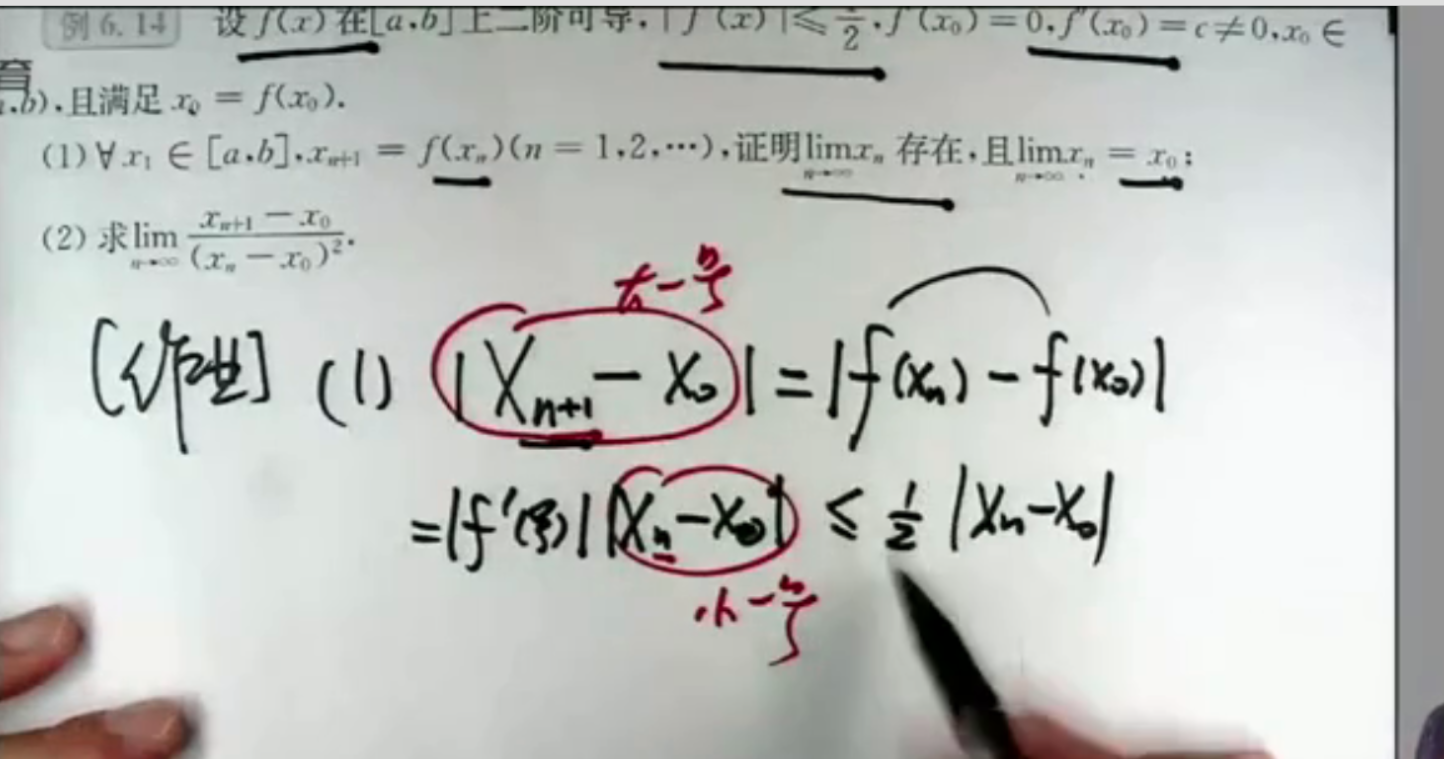 例 6.14 设 f(x) 在[a,b]上二阶可导,|f′(x)|≤1/2,f′(x₀)=0,f″(x₀)=c≠0,x₀∈
育
a,b),且满足 x₀ = f(x₀).
(1) ∀x₁∈[a,b],xₙ₊₁ = f(xₙ)(n = 1,2,⋯),证明 lim_{n→∞} xₙ 存在,且 lim_{n→∞} xₙ = x₀;
(2) 求 lim_{n→∞} (xₙ₊₁ − x₀)/(xₙ − x₀)².
大一号
(1) |Xₙ₊₁ − X₀| = |f(xₙ) − f(x₀)|
= |f′(ξ)| |Xₙ − X₀| ≤ 1/2 |Xₙ − X₀|
小一号